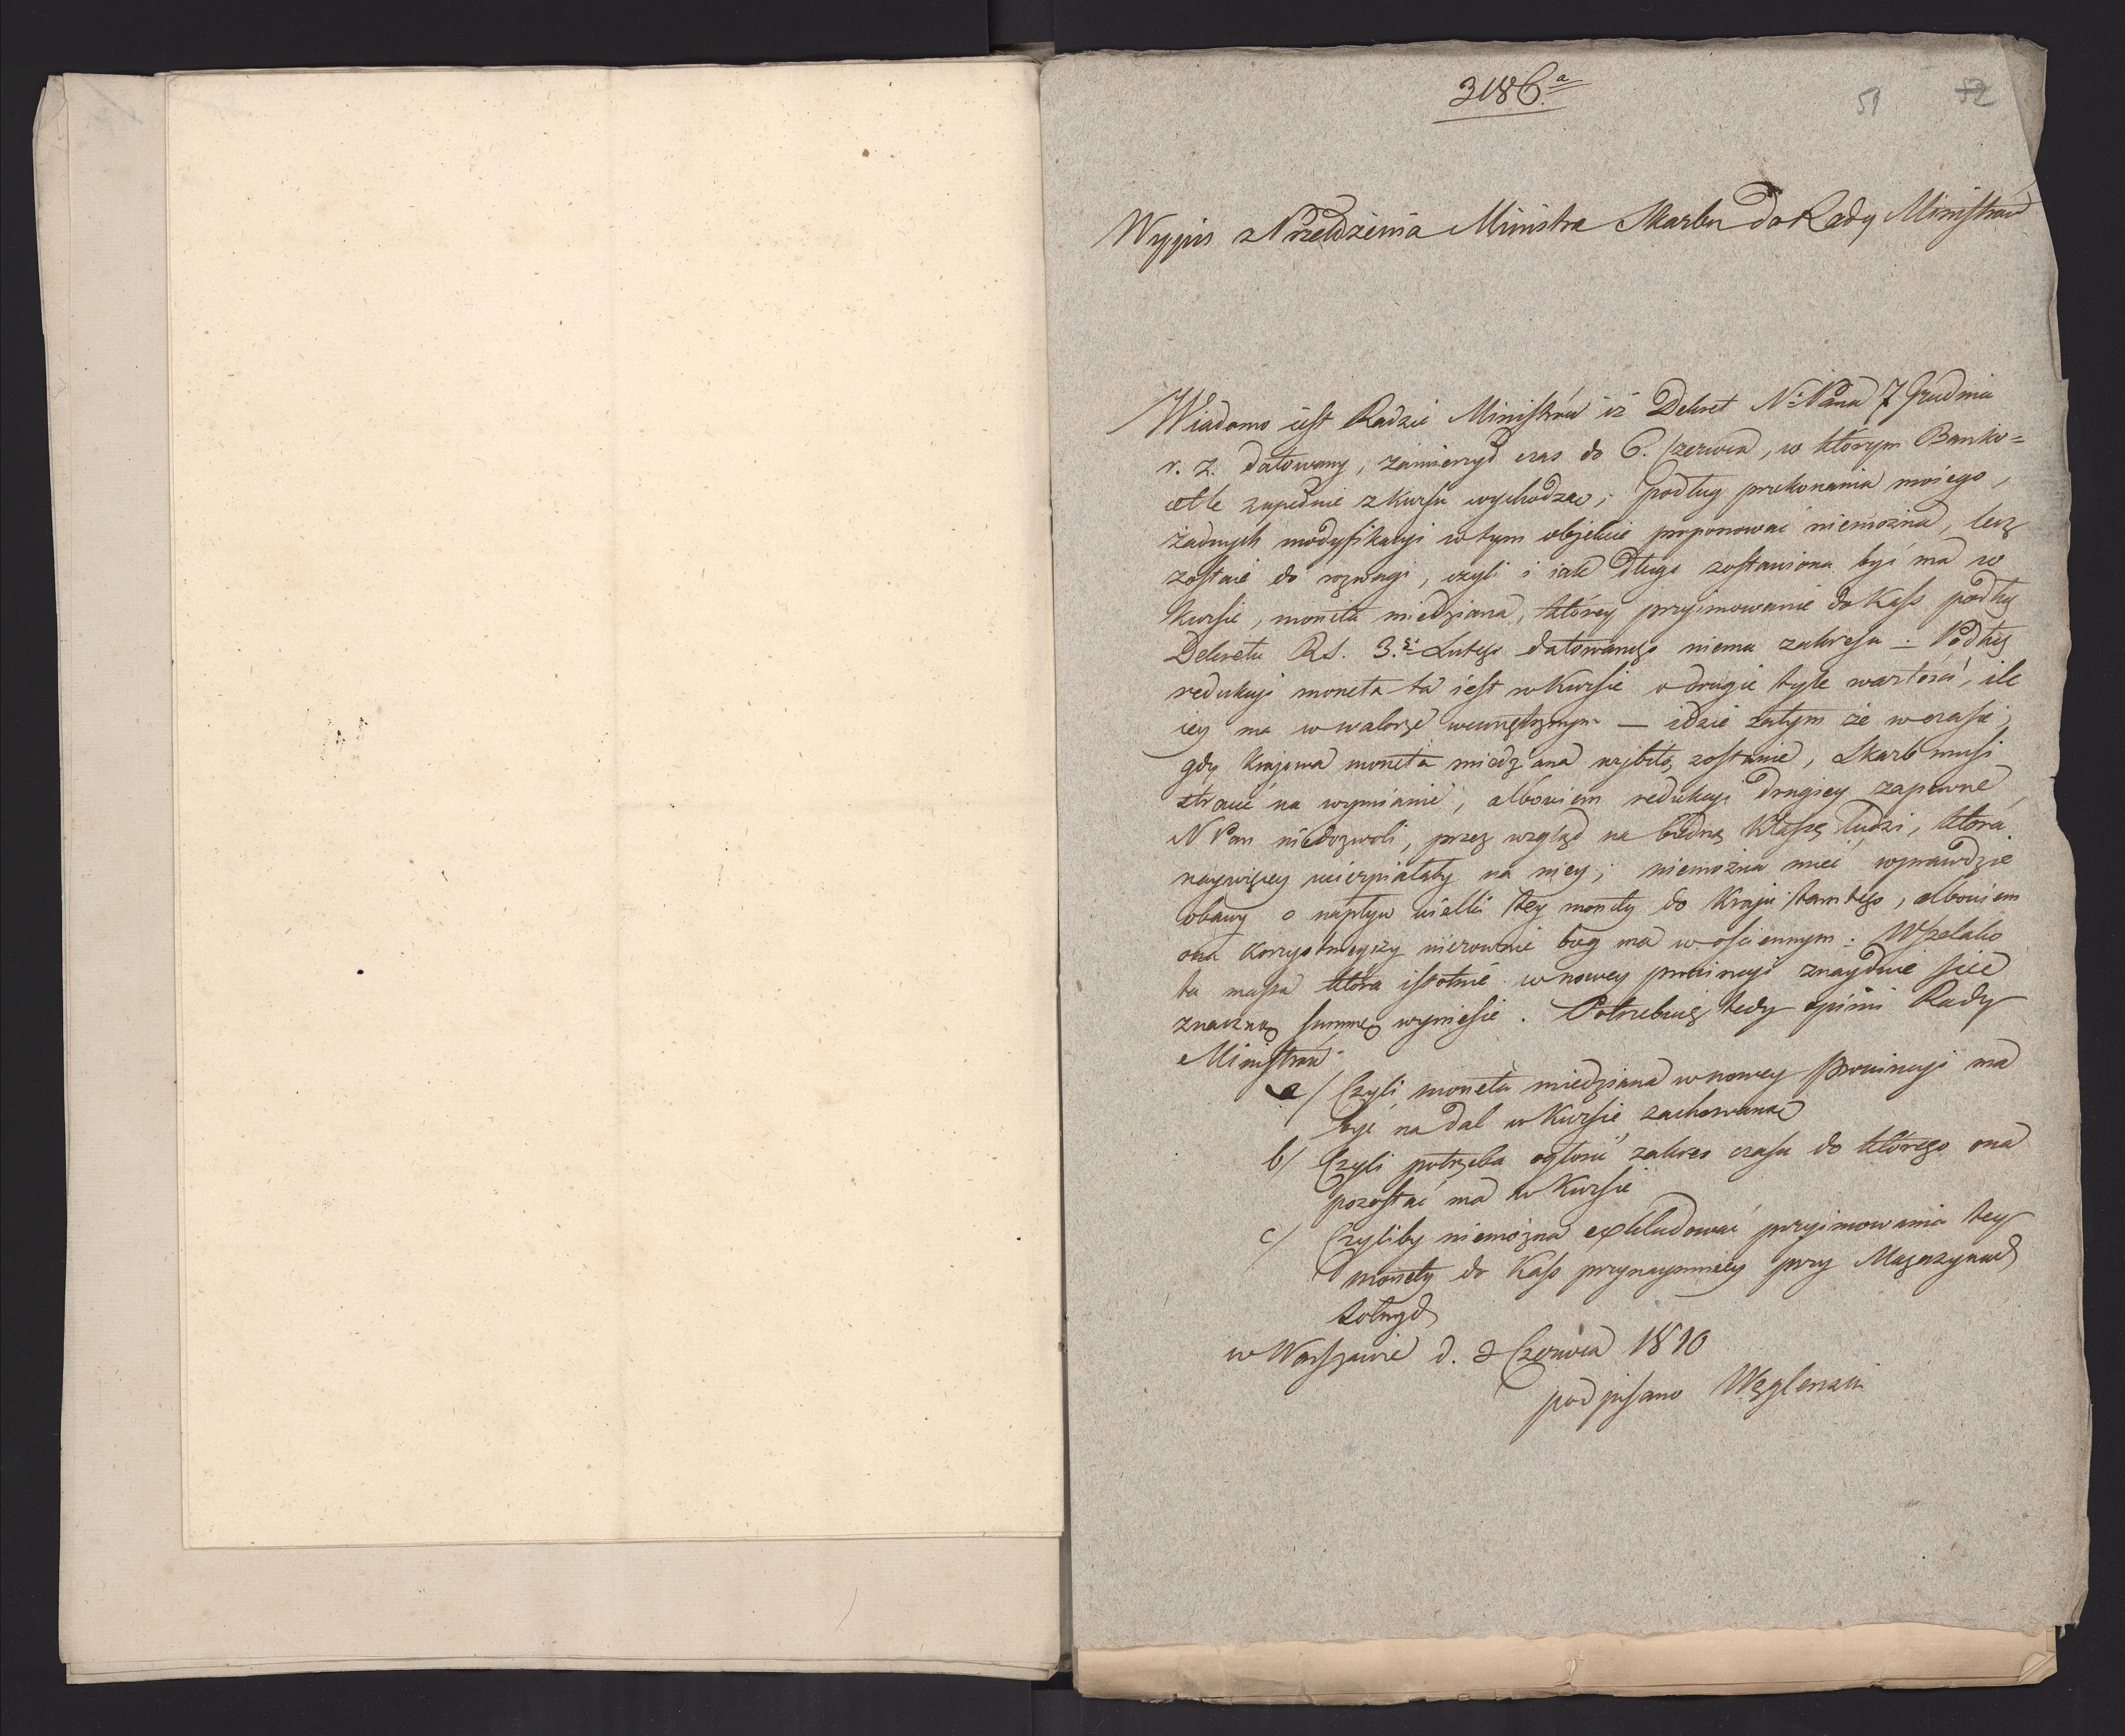 3186.a
51 52
Wypis z Przełożenia Ministra Skarbu do Rady Ministrów
Wiadomo iest Radzie Ministrów iż Dekret N. Pana 7 Grudnia
r. z. datowany, zamierzył czas do 6. Czerwca, w którym Banko=
cetle zupełnie z kursu wychodzą; podług przekonania moiego,
żadnych modyfikacyi w tym obiekcie proponować niemożna, lecz
zostaie do rozwagi, czyli i iak długo zostawiona być ma w
kursie, moneta miedziana, którey przyimowanie do Kass podług
Dekretu 3. Lutego datowanego niema zakresu – Podług
redukcyi moneta ta iest w kursie o drugie tyle wartości, ile
iey ma w walorze wewnętrznym — idzie zatym że w czasie,
gdy kraiowa moneta miedziana wybitą zostanie, Skarb musi
stracić na wymianie, albowiem redukcyi drugiey zapewne
N Pan niedozwoli, przez wzgląd na biedną klassę ludzi, która
naywięcey ucierpiałaby na niey; niemożna mieć wprawdzie
obawy o napływ wielki tey monety do Kraiu tamtego, albowiem
ona korzystnieyszy nierównie bieg ma w ościennym. Wszelako
ta massa która istotnie w nowey prowincyi znayduie się
znaczną summę wyniesie. Potrzebuię tedy opinii Rady
Ministrów
a/ Czyli moneta miedziana w nowey Prowincyi ma
być na dal w kursie zachowaną
b/ Czyli potrzeba ogłosić zakres czasu do którego ona
pozostać ma w kursie
c/ Czyliby niemożna exkludować przyimowania tey
monety do Kass przynaymniey przy Magazynach
solnych
w Warszawie d. 2 Czerwca 1810
podpisano Węglenski